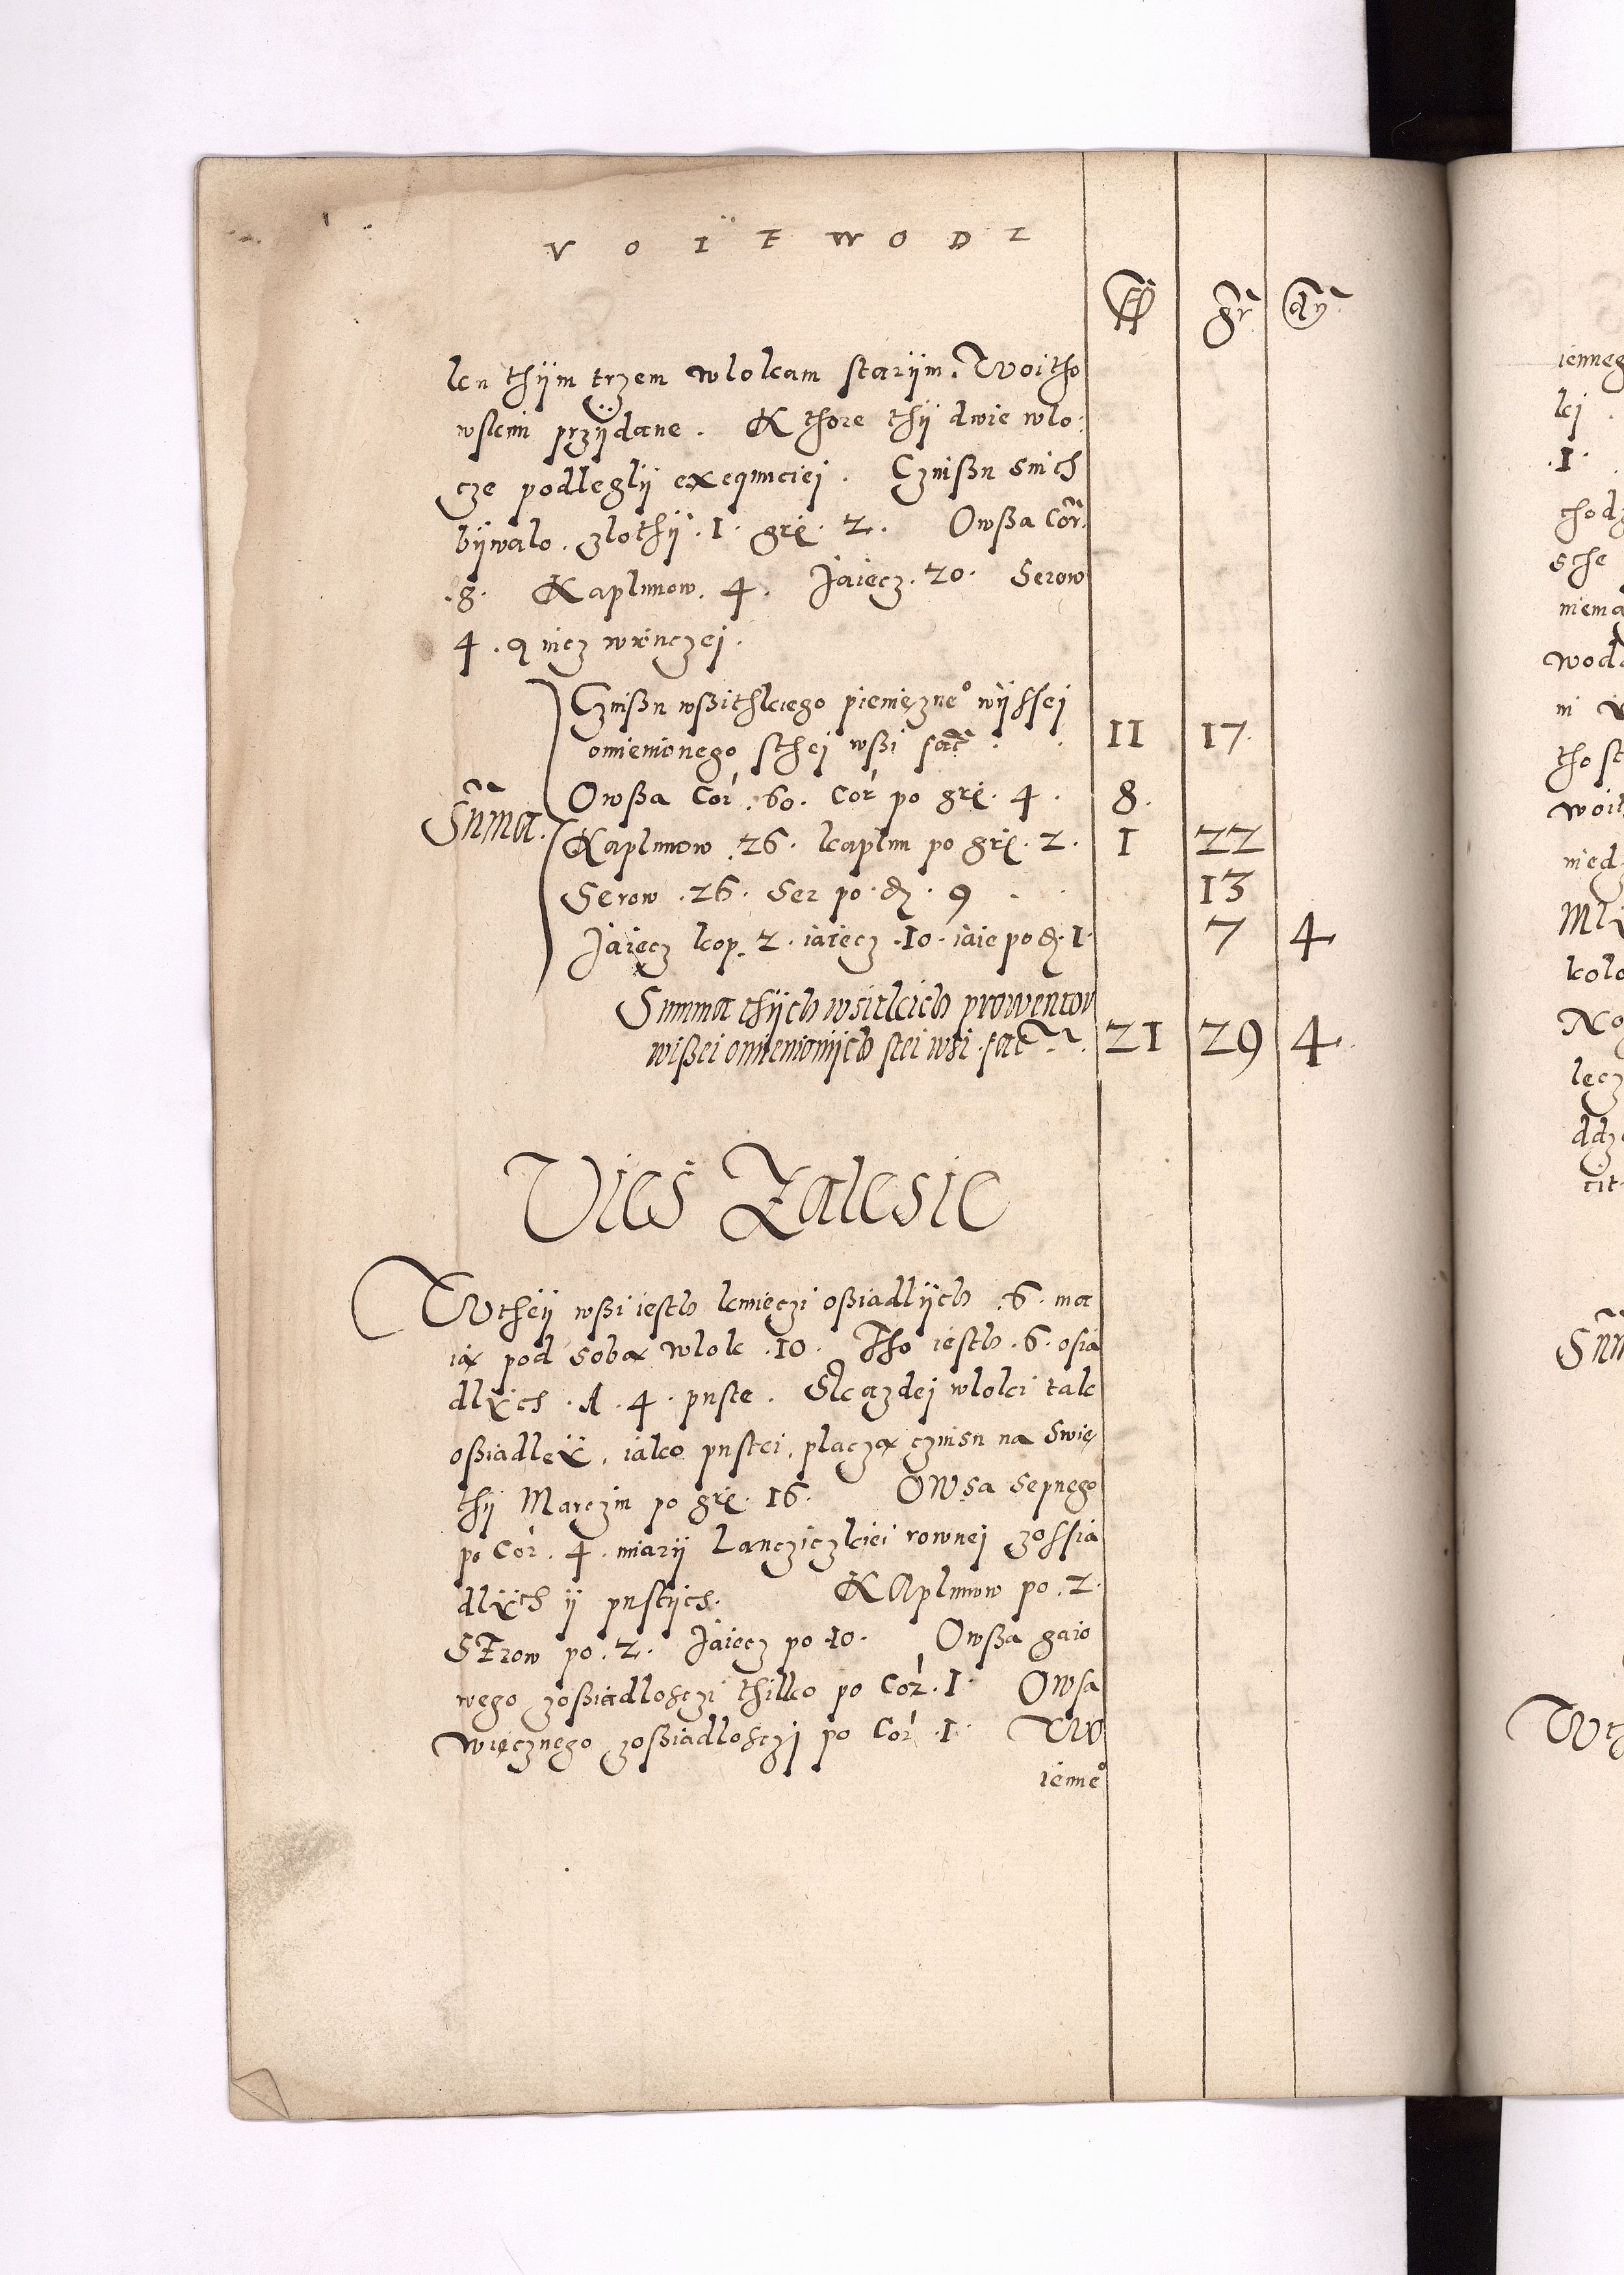 VOIEWODZ
fl gr dn
ku thÿm trzem wlokam starÿm. Woitho
wskim przÿdane. Kthore thÿ dwie wlo
cze podleglÿ exequuciej. Czinßu snich
bÿwalo. zlothÿ .1. grz. 2. Owßa Cor.
.8. Kaplunow. 4. Jaiecz. 20. Serow
4. a nicz wiencze j.
Czinßu wßithkiego pienięzne° wÿssej
omienionego sthej wßi facit . . 11 17.
Sūma. Owßa Cor .60. Cor po grz. 4. 8.
Kaplunow .26. kaplun po grz. 2. 1 22
Serow .26. Ser po. d. 9 . . 13
Jaiecz kop. 2. iaiecz .10. iaie po d. 1. 7 4
Summa thÿch wsitkich prowentow
wißei omienionÿch stei wsi. facit . 21 29 4
Vies Zalesie
Wtheÿ wßi iesth kmieczi oßiadlÿch .6. ma
ią pod sobą wlok .10. Tho iesth .6. osia
dlÿch .A. 4. puste. Skazdej wloki tak
oßiadleÿ, iako pustei, placzą czinsu na Swię
thÿ Marczin po grz. 16. OWsa sepnego
po Cor. 4. miarÿ Lancziczkiei rownej zossia
dlÿch ÿ pustÿch. KAplunow po .2.
SErow po .2. Jaiecz po 10. Owßa gaio
wego zoßiadlosczi thilko po Cor. 1. OWsa
Wiecznego zoßiadlosczj po Cor .1. W
ienne°